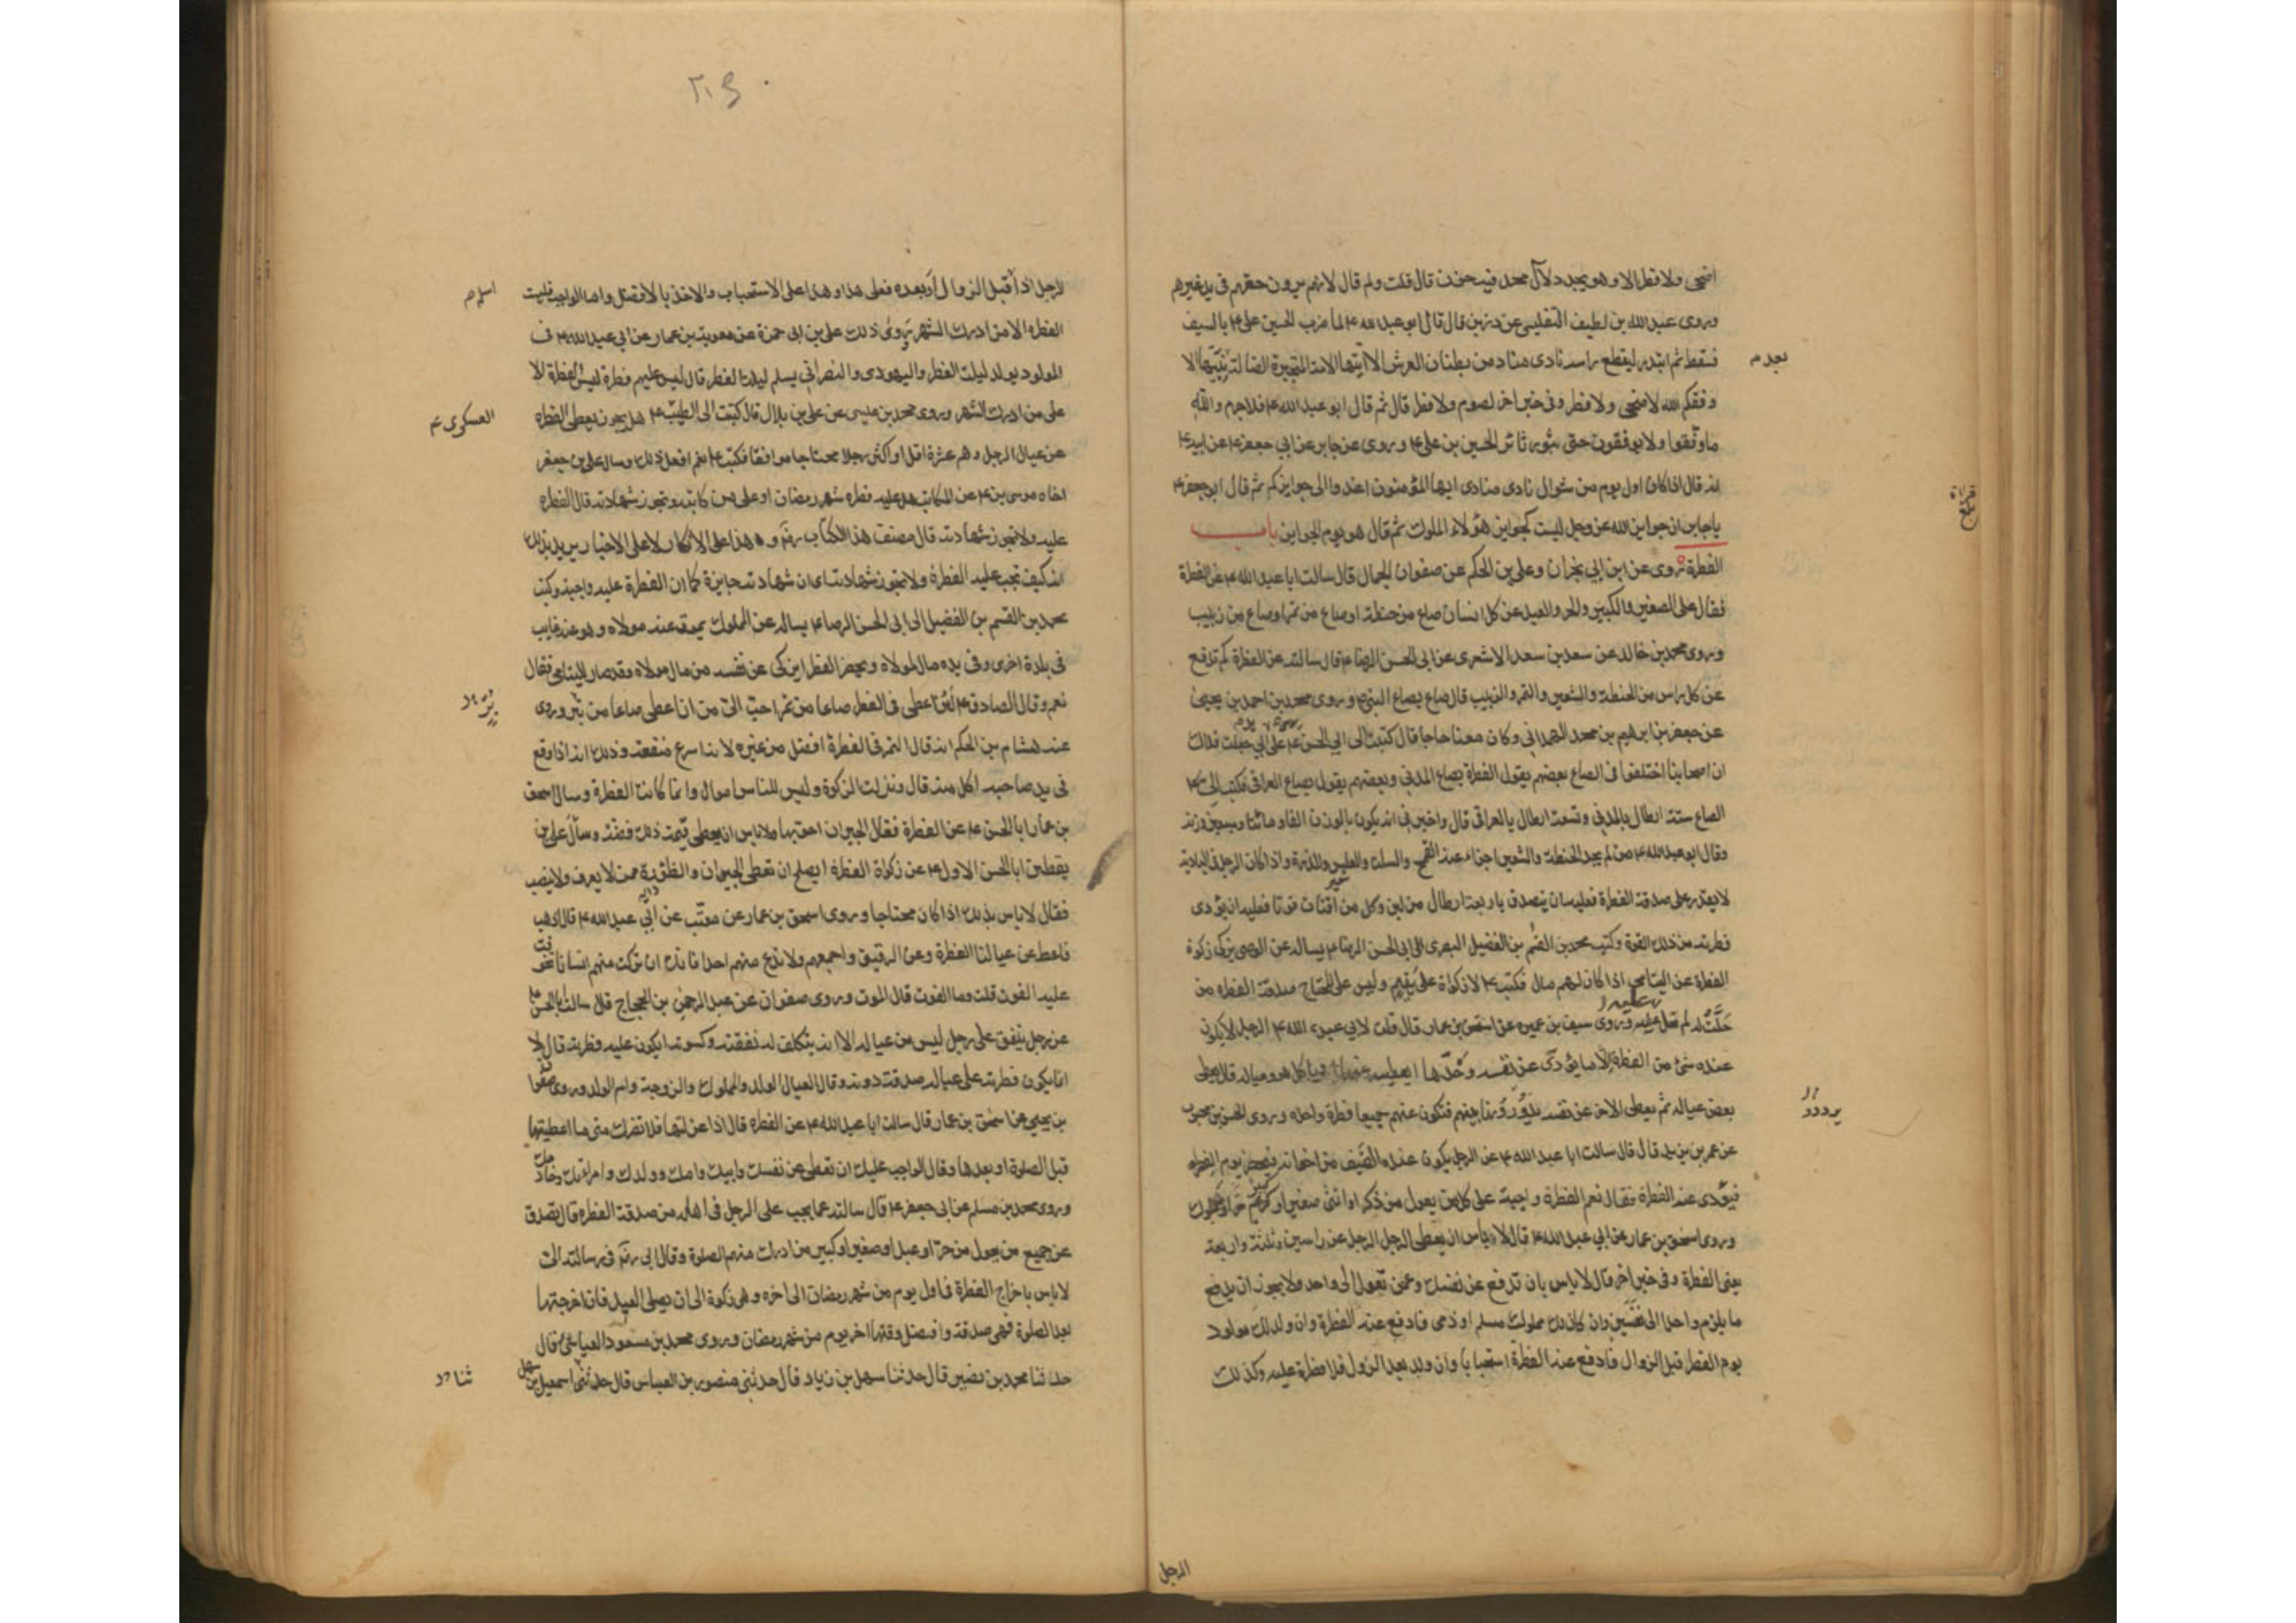 اضحى ولا فطر الا وهو يجدد لآل محمد فيه حزن قال قلت ولم قال لانهم يرون حقهم فى يد غيرهم
وروى عبدالله بن لطيف التفليسى عن رزين قال قال ابو عبدالله ع لما ضرب الحسين بن على ع بالسيف
فسقط ثم ابتدر ليقطع راسه نادى مناد من بطنان العرش الا ايتها الامة المتحيرة الضالة بعد نبيها لا
بعد م
وفقكم الله لاضحى ولا فطر وفى خبر اخر لصوم ولا فطر قال ثم قال ابو عبدالله ع فلا جرم والله
ما وفقوا ولا يوفقون حتى يثور ثائر الحسين بن على ع وروى عن جابر عن ابى جعفر ع عن ابيه ع
انه قال اذا كان اول يوم من شوال نادى منادى ايها المؤمنون اغدوا الى جوايزكم ثم قال ابو جعفر ع
يا جابر ان جوايز الله عز وجل ليست كجوايز هؤلاء الملوك ثم قال هو يوم الجوايز باب
الفطرة روى عن ابن ابى نجران وعلى بن الحكم عن صفوان الجمال قال سالت ابا عبدالله ع عن الفطرة
فقال على الصغير والكبير والحر والعبد عن كل انسان صاع من حنطة او صاع من تمر او صاع من زبيب
وروى محمد بن خالد عن سعد بن سعد الاشعرى عن ابى الحسن الرضا ع قال سالته عن الفطرة كم تدفع
عن كل راس من الحنطة والشعير والتمر والزبيب قال صاع بصاع النبى ص وروى محمد بن احمد بن يحيى
عن جعفر بن ابرهيم بن محمد الهمدانى وكان معنا حاجا قال كتبت الى ابى الحسن ع على يدى ابى جعلت فداك
ان اصحابنا اختلفوا فى الصاع بعضهم يقول الفطرة بصاع المدنى وبعضهم يقول بصاع العراقى فكتب الى ع
الصاع ستة ارطال بالمدنى وتسعة ارطال بالعراقى قال واخبرنى انه يكون بالوزن الفا ومائتا وسبعين وزنة
وقال ابو عبدالله ع من لم يجد الحنطة والشعير اجزاء عنه القمح والسلت والعلس والذرة واذا كان الرجل فى البادية
لا يقدر على صدقة الفطرة فعليه ان يتصدق باربعة ارطال من لبن وكل من اقتات قوتا فعليه ان يؤدى
فطرته من ذلك القوت وكتب محمد بن القسم بن الفضيل البصرى الى ابى الحسن الرضا ع يساله عن الوصى يزكى زكوة
الفطرة عن اليتامى اذا كان لهم مال فكتب ع لا زكوة على يتيم وليس على المحتاج صدقة الفطرة من
حلت له لم تحل عليه وروى سيف بن عميرة عن اسحق بن عمار قال قلت لابى عبدالله ع الرجل لا يكون
عنده شئ من الفطرة الا ما يؤدى عن نفسه وحدها ايعطيه غريبا او ياكل هو وعياله قال يعطى
بعض عياله ثم يعطى الاخر عن نفسه يرددونها بينهم فتكون عنهم جميعا فطرة واحدة وروى الحسن بن محبوب
عن عمر بن يزيد قال قال سالت ابا عبدالله ع عن الرجل يكون عنده الضيف من اخوانه فيحضر يوم الفطر
فيؤدى عنه الفطرة فقال نعم الفطرة واجبة على كل من يعول من ذكر او انثى صغير او كبير حر او مملوك
وروى اسحق بن عمار عن ابى عبدالله ع قال لا باس ان يعطى الرجل الرجل عن راسين وثلثة واربعة
يعنى الفطرة وفى خبر اخر قال لا باس بان تدفع عن نفسك وعمن تعول الى واحد ولا يجوز ان يدفع
ما يلزم واحدا الى نفسين وان كان لك مملوك مسلم او ذمى فادفع عنه الفطرة وان ولد لك مولود
يوم الفطر قبل الزوال فادفع عنه الفطرة استحبابا وان ولد بعد الزوال فلا فطرة عليه وكذلك
الرجل
الرجل اذا قبل الزوال او بعده فعلى هذا وهذا على الاستحباب والاخذ بالافضل واما الواجب فليست
اسلم م
الفطرة الا من ادرك الشهر روى ذلك على بن ابى حمزة عن معوية بن عمار عن ابى عبدالله ع فى
المولود يولد ليلة الفطر واليهودى والنصرانى يسلم ليلة الفطر قال ليس عليهم فطرة ليس الفطرة الا
على من ادرك الشهر وروى محمد بن عيسى عن على بن بلال قال كتبت الى الطيب ع هل يجوز ان يعطى الفطرة
العسكرى ع
عن عيال الرجل وهم عشرة اقل او اكثر رجلا محتاجا موافقا فكتب ع نعم افعل ذلك وسال على بن جعفر
اخاه موسى بن ع عن المكاتب هل عليه فطرة شهر رمضان او على من كاتبه وتجوز شهادته قال الفطرة
عليه ولا تجوز شهادته قال مصنف هذا الكتاب ره وهذا على الانكار لا على الاخبار يريد بذلك
انه كيف تجب عليه الفطرة ولا تجوز شهادته اى ان شهادته جايزة كما ان الفطرة عليه واجبة وكتب
محمد بن القسم بن الفضيل الى ابى الحسن الرضا ع يساله عن المملوك يموت عنه مولاه وهو عنه غايب
فى بلدة اخرى وفى يده مال لمولاه ويحضر الفطر ايزكى عن نفسه من مال مولاه وقد صار لليتامى فقال
نعم وقال الصادق ع لان اعطى فى الفطرة صاعا من تمر احب الى من ان اعطى صاعا من تبر وروى
عنه هشام بن الحكم انه قال التمر فى الفطرة افضل من غيره لانه اسرع منفعة وذلك انه اذا وقع
فى يد صاحبه اكل منه قال ونزلت الزكوة وليس للناس اموال وانما كانت الفطرة وسال اسحق
بن عمار ابا الحسن ع عن الفطرة فقال الجيران احق بها ولا باس ان يعطى قيمة ذلك فضة وسال على بن
يقطين ابا الحسن الاول ع عن زكوة الفطرة ايصلح ان تعطى الجيران والظؤرة ممن لا يعرف ولا ينصب
فقال لا باس بذلك اذا كان محتاجا وروى اسحق بن عمار عن معتب عن ابى عبدالله ع قال اذهب
فاعط عن عيالنا الفطرة وعن الرقيق واجمعهم ولا تدع منهم احدا فانك ان تركت منهم انسانا تخوفت
عليه الفوت قلت وما الفوت قال الموت وروى صفوان عن عبد الرحمن بن الحجاج قال سالت ابا الحسن ع
عن رجل ينفق على رجل ليس من عياله الا انه يتكلف له نفقته وكسوته ايكون عليه فطرته قال لا
انما يكون فطرته على عياله صدقة دونه وقال العيال الولد والمملوك والزوجة وام الولد وروى صفوان
بن يحيى عن اسحق بن عمار قال سالت ابا عبدالله ع عن الفطرة قال اذا عزلتها فلا تضرك متى ما اعطيتها
قبل الصلوة او بعدها وقال الواجب عليك ان تعطى عن نفسك وابيك وامك وولدك وامراتك وخادمك
وروى محمد بن مسلم عن ابى جعفر ع قال سالته عما يجب على الرجل فى اهله من صدقة الفطرة قال تصدق
عن جميع من يعول من حر او عبد او صغير او كبير من ادرك منهم الصلوة وقال ابى ره فى رسالته الى
لا باس باخراج الفطرة فى اول يوم من شهر رمضان الى اخره وهى زكوة الى ان يصلى العيد فان اخرجتها
بعد الصلوة فهى صدقة وافضل وقتها اخر يوم من شهر رمضان وروى محمد بن مسعود العياشى قال
حدثنا محمد بن نصير قال حدثنا سهل بن زياد قال حدثنى منصور بن العباس قال حدثنى اسمعيل بن سهل